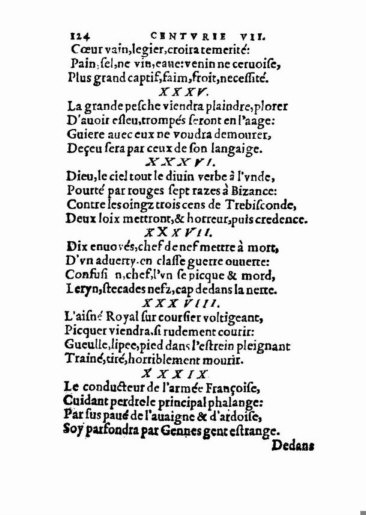 124 CENTVRIE VII.
Cœur vain, legier, croira temerité:
Pain, ſel, ne vin, eau: venin ne ceruoiſe,
Plus grand captif, faim, froit, neceſſité.
XXXV.
La grande peſche viendra plaindre, plorer
D'auoir eſleu, trompés ſeront en l'aage:
Guiere auec eux ne voudra demourer,
Deçeu ſera par ceux de ſon langaige.
XXXVI.
Dieu, le ciel tout le diuin verbe à l'vnde,
Pourté par rouges ſept razes à Bizance:
Contre les oingz trois cens de Trebiſconde,
Deux loix mettront, & horreur, puis credence.
XXXVII.
Dix enuoyés, chef de nef mettre à mort,
D'vn aduerty, en claſſe guerre ouuerte:
Confuſi n, chef, l'vn ſe picque & mord,
Leryn, ſtecades nefz, cap dedans la nerte.
XXXVIII.
L'aiſné Royal ſur courſier voltigeant,
Picquer viendra, ſi rudement courir:
Gueulle, lipee, pied dans l'eſtrein pleignant
Trainé, tiré, horriblement mourir.
XXXIX
Le conducteur de l'armée Françoiſe,
Cuidant perdre le principal phalange:
Par ſus paué de l'auaigne & d'ardoiſe,
Soy parfondra par Gennes gent eſtrange.
Dedans